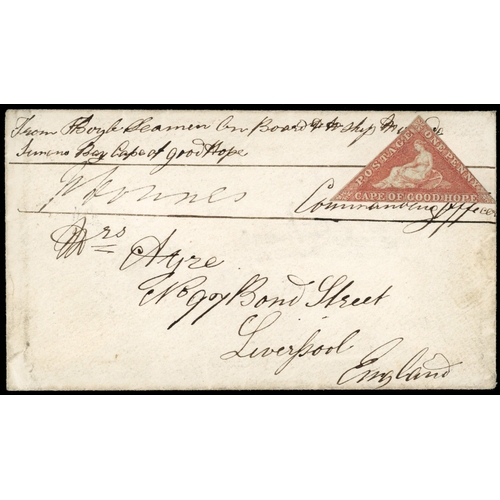 From Boyle Seamen On Board H M Ship
Simons Bay Cape of good Hope
POSTAGE ONE PENNY
CAPE OF GOOD HOPE
Commanding Officer
Mrs Ayre
No 97 Bond Street
Liverpool
England